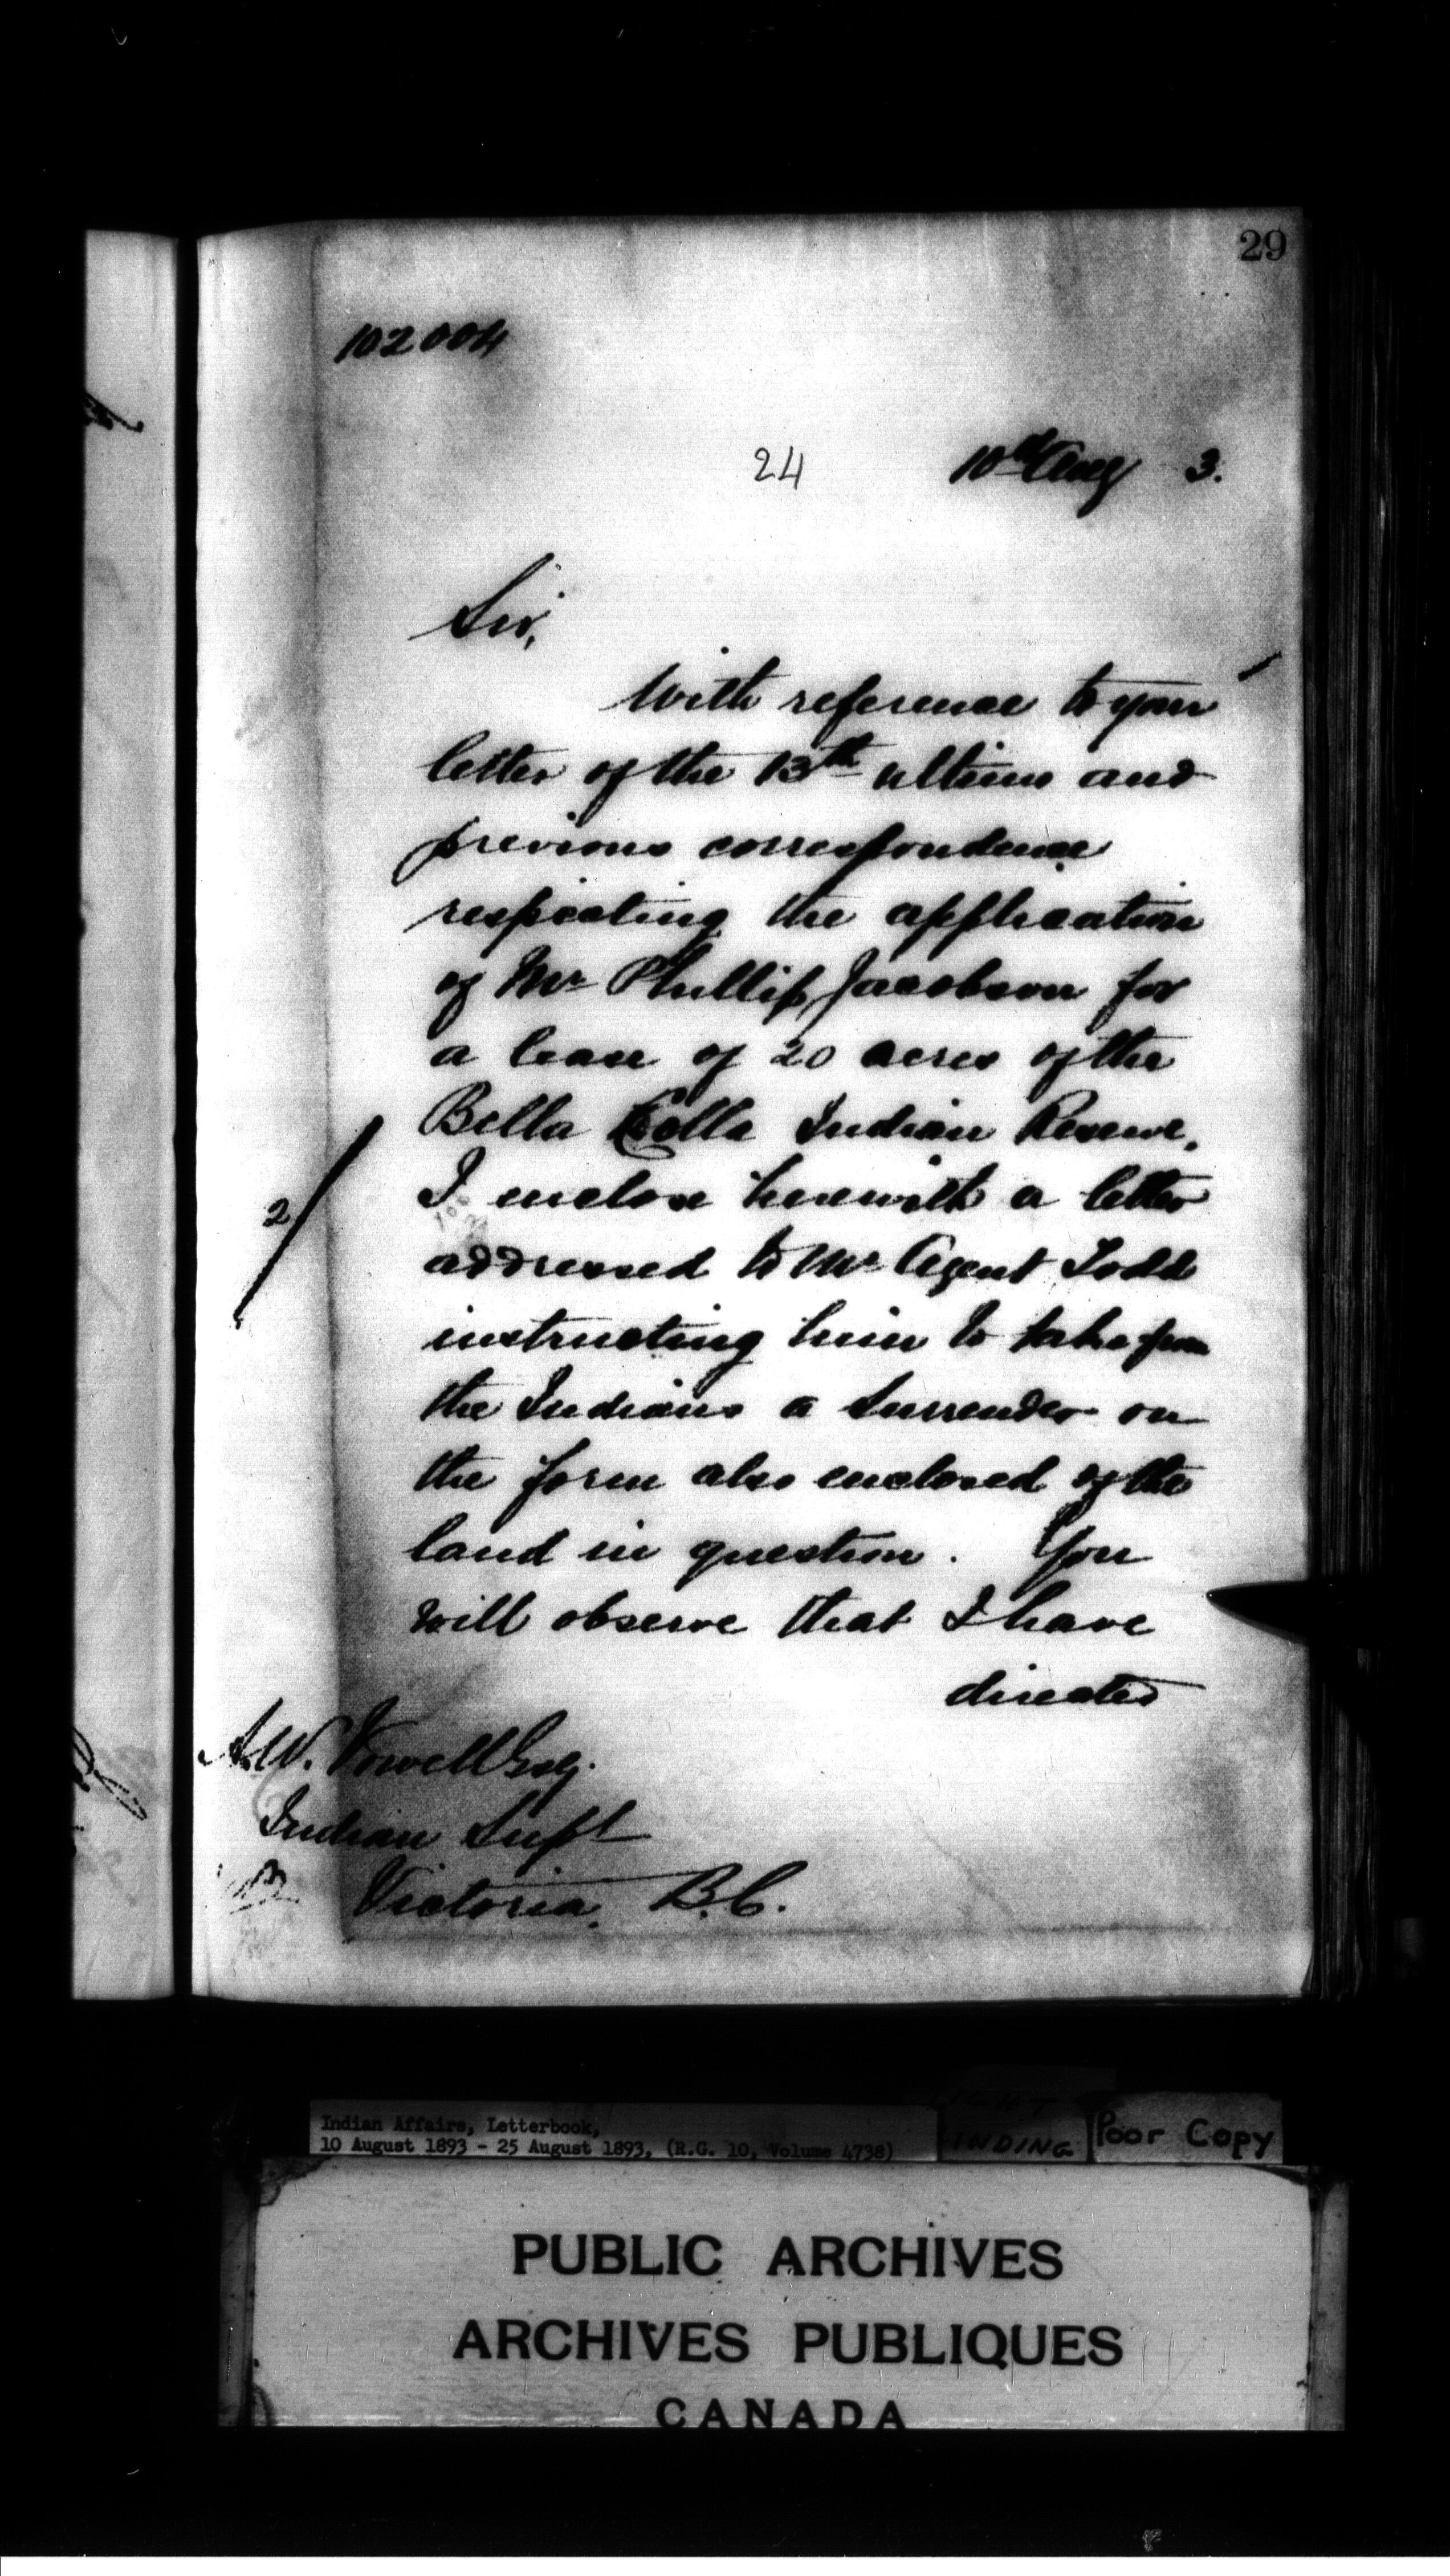 29
102004
24 10th Aug 3.
Sir,
With reference to your
letter of the 13th ultimo and
previous correspondence
respecting the application
of Mr Phillip Jacobson for
a lease of 20 acres of the
Bella Colla Indian Reserve,
I enclose herewith a letter
2/
addressed to Mr Agent Todd
instructing him to take from
the Indians a Surrender on
the form also enclosed of the
land in question. You
will observe that I have
directed
A.W. Vowell Esq.
Indian Supt
Victoria, B.C.
Indian Affairs, Letterbook,
10 August 1893 - 25 August 1893, (R.G. 10, Volume 4738)
Poor Copy
PUBLIC ARCHIVES
ARCHIVES PUBLIQUES
CANADA